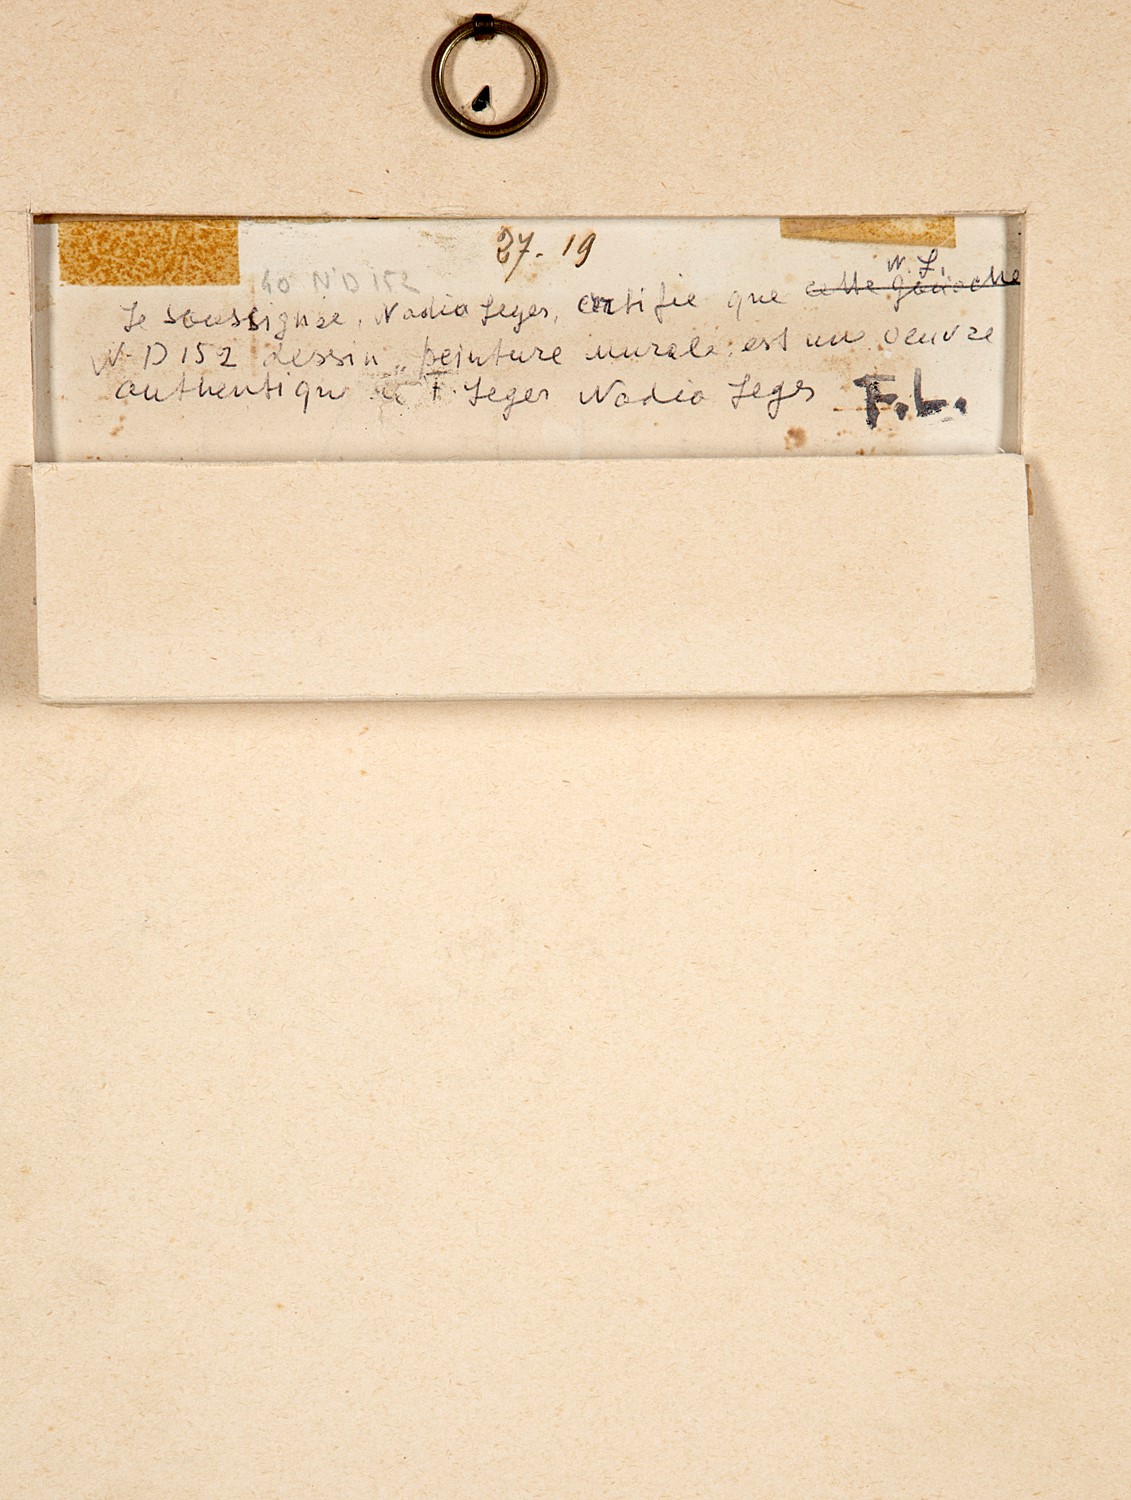 27. 19
40 N°D 152
N. L.
Je soussignée, Nadia Leger, certifie que cette gouache
N° D 152 dessin „peinture murale" est une oeuvre
authentique de F. Leger Nadia Leger F.L.